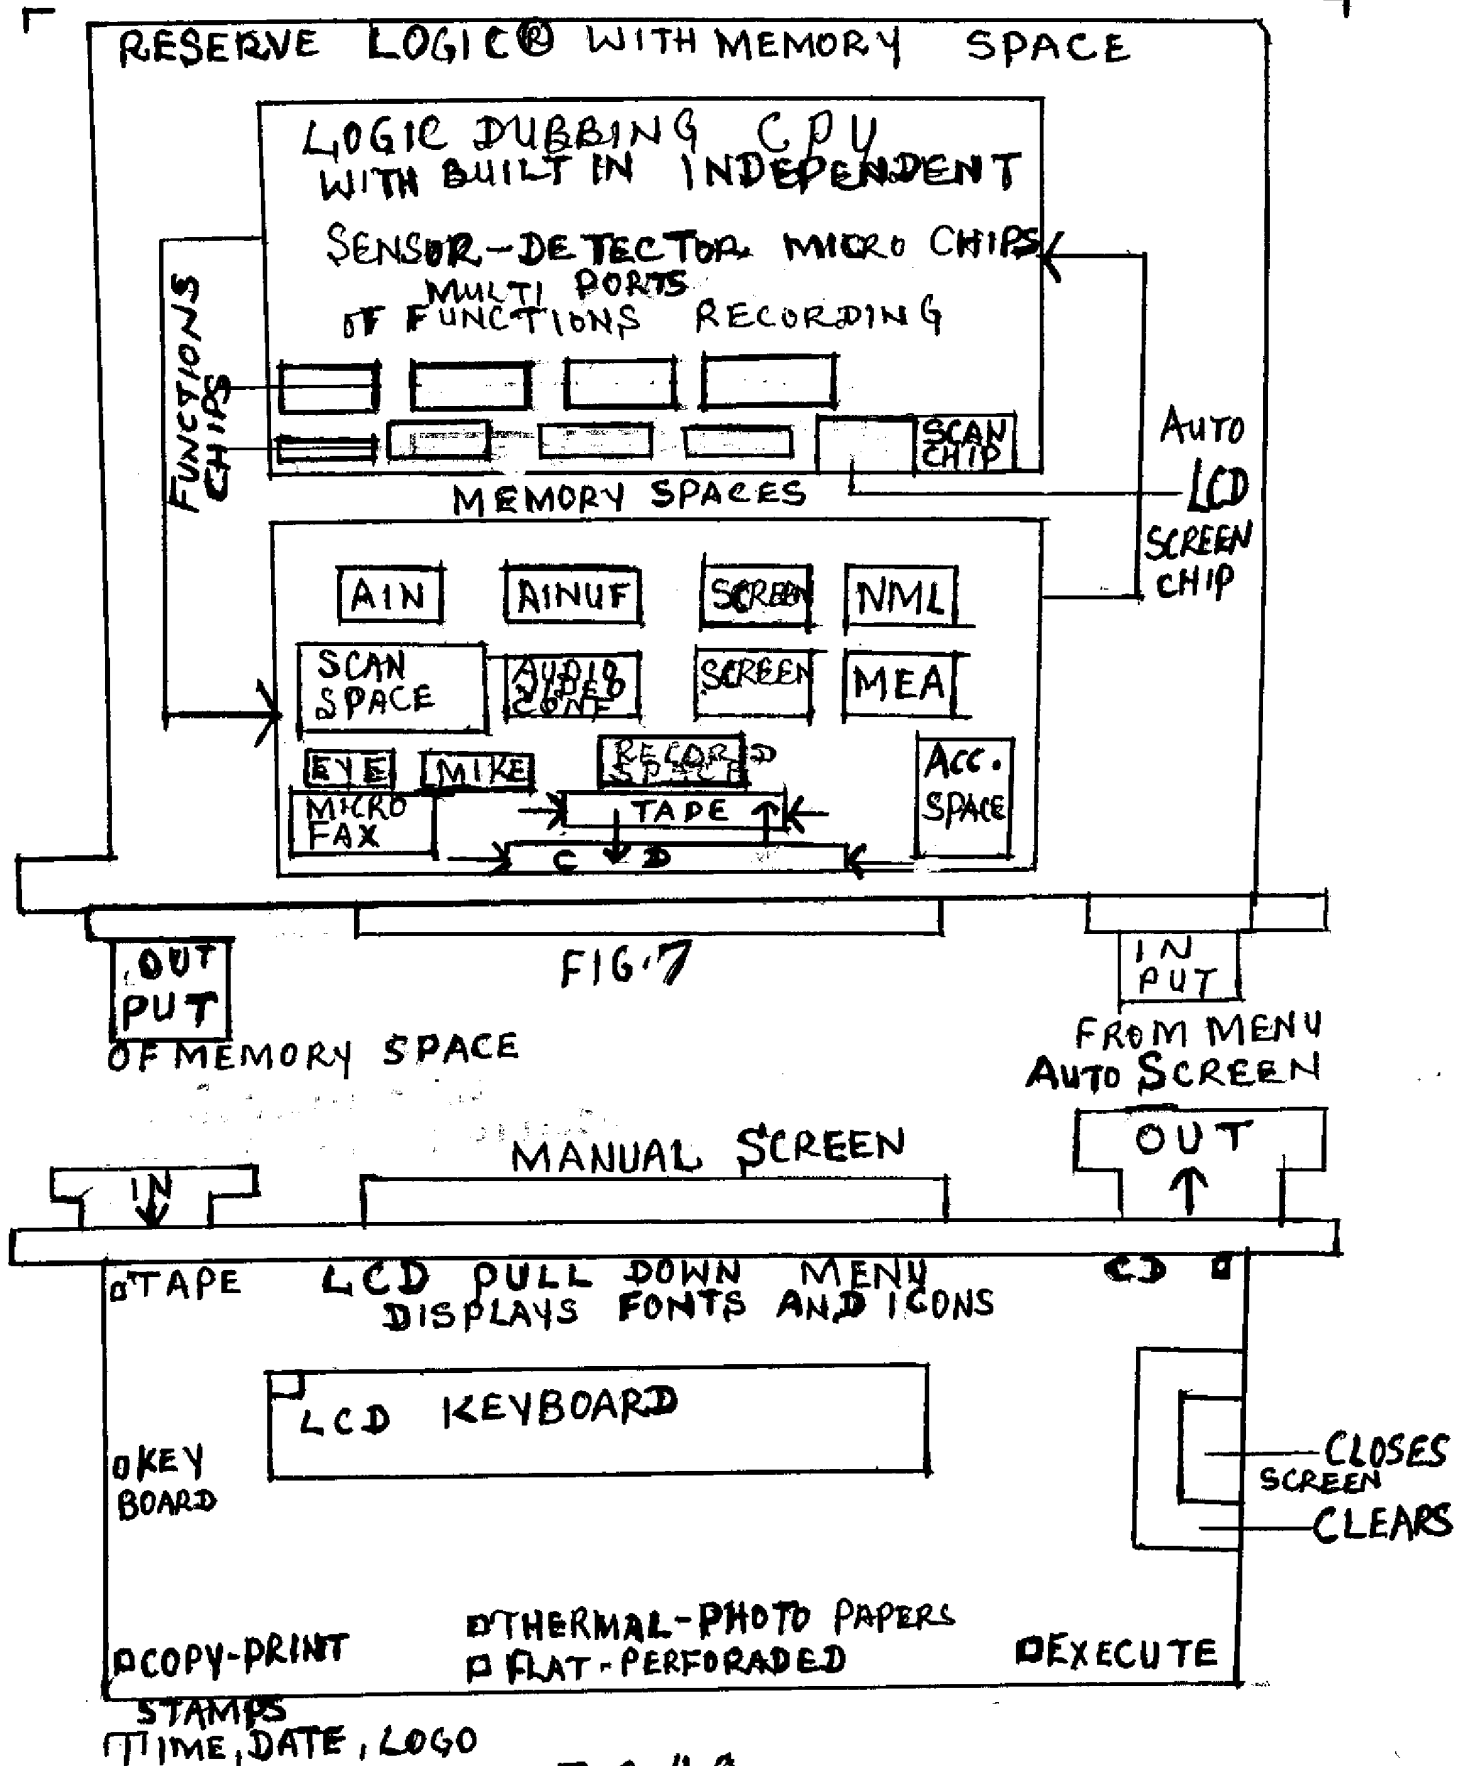 RESERVE LOGIC® WITH MEMORY SPACE
LOGIC DUBBING CPU
WITH BUILT IN INDEPENDENT
SENSOR-DETECTOR MICRO CHIPS
MULTI PORTS
OF FUNCTIONS RECORDING
FUNCTIONS
CHIPS
SCAN
CHIP
AUTO
LCD
SCREEN
CHIP
MEMORY SPACES
AIN
AINUF
SCREEN
NML
SCAN
SPACE
AUDIO
VIDEO
CONF
SCREEN
MEA
EYE
MIKE
RECORD
SPACE
ACC.
SPACE
MICRO
FAX
TAPE
C D
OUT
PUT
OF MEMORY SPACE
FIG.7
IN
PUT
FROM MENU
AUTO SCREEN
MANUAL SCREEN
IN
OUT
TAPE
LCD PULL DOWN MENU
DISPLAYS FONTS AND ICONS
CD
LCD KEYBOARD
KEY
BOARD
CLOSES
SCREEN
CLEARS
THERMAL-PHOTO PAPERS
FLAT-PERFORADED
COPY-PRINT
EXECUTE
STAMPS
TIME, DATE, LOGO